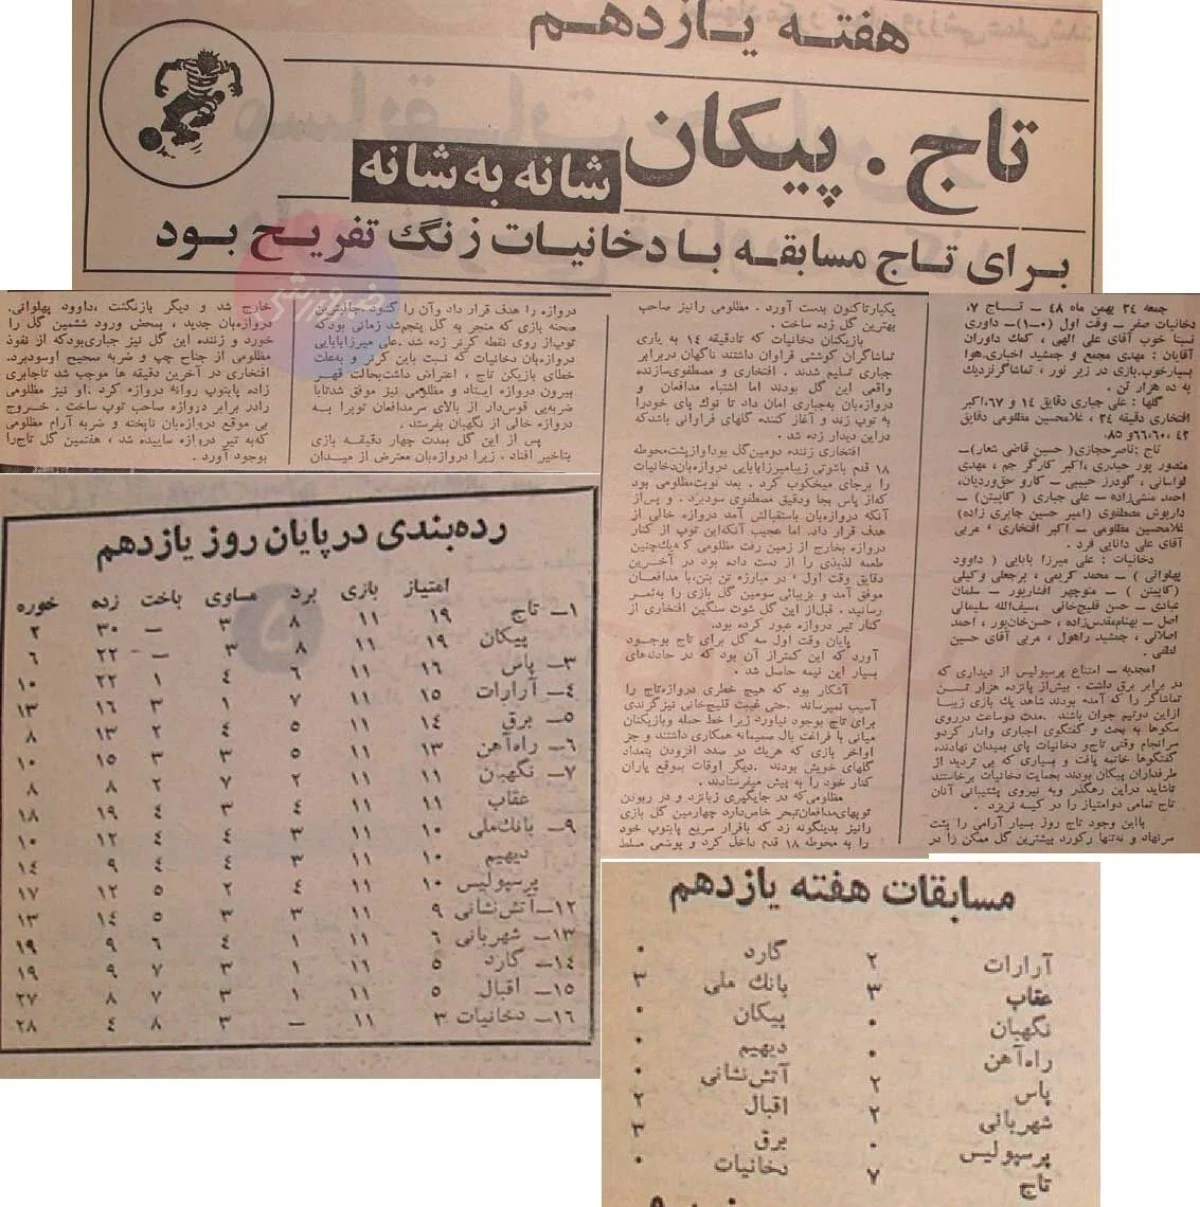 هفته یازدهم
تاج . پیکان
شانه به شانه
برای تاج مسابقه با دخانیات زنگ تفریح بود
خبرورزشی
جمعه ۲۴ بهمن ماه ۴۸ ـ تاج ۷،
دخانیات صفر ـ وقت اول (۳ـ۰) ـ داوری
نسبتا خوب آقای علی الهی ، کمك داوران
آقایان : مهدی مجمع و جمشید اخباری.هوا
بسیارخوب.بازی در زیر نور ، تماشاگرنزدیك
به ده هزار تن .
گلها : علی جباری دقایق ۱۴ و ۶۷،اکبر
افتخاری دقیقه ۳۴ ، غلامحسین مظلومی دقایق
۴۲ ،۶۰،۶۶و ۸۵.
تاج :ناصرحجازی( حسین قاضی شعار)ـ
منصور پور حیدری ،اکبر کارگر جم ، مهدی
لواسانی ، گودرز حبیبی ـ کارو حق‌وردیان،
احمد منشی‌زاده ـ علی جباری (کاپیتن) ـ
داریوش مصطفوی (امیر حسین جابری زاده)
غلامحسین مظلومی ـ اکبر افتخاری ، مربی
آقای علی دانایی فرد .
دخانیات : علی میرزا بابایی ( داوود
پهلوانی ) ـ محمد کریمی ، برجعلی وکیلی
(کاپیتن ) ـ منوچهر افشارپور ـ سلمان
عبادی ـ حسن قلیج‌خانی ،سیف‌الله سلیمانی
اصل ـ بهنام‌مقدس‌زاده ، حسن‌خان‌پور ، احمد
اصلانی ، جمشید راهول ، مربی آقای حسین
لطفی .
امجدیه ـ امتناع پرسپولیس از دیداری که
در برابر برق داشت . بیش‌از پانزده هزار تن
تماشاگر را که آمده بودند شاهد یك بازی زیبا
ازاین دوتیم جوان باشند .مدت دوساعت درروی
سکوها به بحث و گفتگوی اجباری وادار کردو
سرانجام وقتی تاج‌و دخانیات پای بمیدان نهادند،
گفتگوها خاتمه یافت و بسیاری که بی تردید از
طرفداران پیکان بودند بحمایت دخانیات برخاستند
تاشاید دراین رهگذر وبه نیروی پشتیبانی آنان
تاج تمامی دوامتیاز را در کیسه نریزد .
بااین وجود تاج روز بسیار آرامی را پشت
سرنهاد و نه‌تنها رکورد بیشترین گل ممکن را در
یکبارتاکنون بدست آورد . مظلومی رانیز صاحب
بهترین گل زده ساخت .
بازیکنان دخانیات که تادقیقه ۱۴ به یاری
تماشاگران کوششی فراوان داشتند ناگهان دربرابر
جباری تسلیم شدند . افتخاری و مصطفوی‌سازنده
واقعی این گل بودند اما اشتباه مدافعان و
دروازه‌بان به‌جباری امان داد تا نوك پای خودرا
به توپ زند و آغاز کننده گلهای فراوانی باشدکه
دراین دیدار زده شد .
افتخاری زننده دومین‌گل بود‌او‌ازپشت‌محوطه
۱۸ قدم باشوتی زیبامیرزابابایی دروازه‌بان‌دخانیات
را برجای میخکوب کرد . بعد نوبت‌مظلومی بود
که‌از پاس بجا ودقیق مصطفوی سودبرد . و پس‌از
آنکه دروازه‌بان باستقبالش آمد دروازه خالی از
هدف قرار داد. اما عجیب آنکه‌این توپ از کنار
دروازه بخارج از زمین رفت مظلومی که‌یك‌چنین
طعمه لذیذی را از دست داده بود در آخرین
دقایق وقت اول ، در مبارزه تن بتن‌با مدافعان
موفق آمد و بزیبائی سومین گل بازی را به‌ثمر
رسانید . قبل‌از این گل شوت سنگین افتخاری از
کنار تیر دروازه عبور کرده بود.
پایان وقت اول سه گل برای تاج بوجود
آورد که این کمتراز آن بود که در حادثه‌های
بسیار این نیمه حاصل شد .
آشکار بود که هیچ خطری دروازه‌تاج را
آسیب نمیرساند .حتی غیبت قلیچ‌خانی نیزگزندی
برای تاج بوجود نیاورد زیرا خط حمله وبازیکنان
میانی با فراغت بال صمیمانه همکاری داشتند و جز
اواخر بازی که هریك در صدد افزودن بتعداد
گلهای خویش بودند .دیگر اوقات بموقع یاران
کنار خود را به پیش میفرستادند .
مظلومی‌که در جایگیری زبانزد و در ربودن
توپهای‌مدافعان‌تبحر خاص‌دارد چهارمین گل بازی
رانیز بدینگونه زد که بافرار سریع پابتوپ خود
را به محوطه ۱۸ قدم داخل کرد و بوضعی مسلط
دروازه را هدف قرار داد.وآن را گشود.جالبترین
صحنه بازی که منجر به گل پنجم‌شد زمانی بودکه
توپ‌از روی نقطه کرنر زده شد .علی میرزابابایی
دروازه‌بان دخانیات که نسبت باین کرنر و به‌علت
خطای بازیکن تاج ، اعتراض داشت‌بحالت قهر
بیرون دروازه ایستاد و مظلومی نیز موفق شدتابا
ضربه‌یی قوس‌دار از بالای سرمدافعان توپرا به
دروازه خالی از نگهبان بفرستد .
پس از این گل بمدت چهار دقیقه بازی
بتاخیر افتاد . زیرا دروازه‌بان معترض از میدان
خارج شد و دیگر بازنگشت .داوود پهلوانی،
دروازه‌بان جدید ، بمحض ورود ششمین گل را
خورد و زننده این گل نیز جباری‌بودکه از نفوذ
مظلومی از جناح چپ و ضربه صحیح اوسودبرد.
افتخاری در آخرین دقیقه ها موجب شد تاجابری
زاده پابتوپ روانه دروازه گردد .او نیز مظلومی
رادر برابر دروازه صاحب توپ ساخت . خروج
بی موقع دروازه‌بان ناپخته و ضربه آرام مظلومی
که‌به تیر دروازه ساییده شد ، هفتمین گل تاج‌را
بوجود آورد .
رده‌بندی در پایان روز یازدهم
امتیاز بازی برد مساوی باخت زده خورده
۱ـ تاج ۱۹ ۱۱ ۸ ۳ ـ ۳۰ ۲
پیکان ۱۹ ۱۱ ۸ ۳ ـ ۲۲ ۶
۳ـ پاس ۱۶ ۱۱ ۶ ۴ ۱ ۲۲ ۱۰
۴ـ آرارات ۱۵ ۱۱ ۷ ۱ ۳ ۱۶ ۱۳
۵ـ برق ۱۴ ۱۱ ۵ ۴ ۲ ۱۳ ۸
۶ـ راه‌آهن ۱۳ ۱۱ ۵ ۳ ۳ ۱۵ ۱۰
۷ـ نگهبان ۱۱ ۱۱ ۲ ۷ ۲ ۸ ۸
عقاب ۱۱ ۱۱ ۴ ۳ ۴ ۱۹ ۱۸
۹ـ بانك‌ملی ۱۰ ۱۱ ۳ ۴ ۴ ۱۲ ۱۰
دیهیم ۱۰ ۱۱ ۳ ۴ ۴ ۹ ۱۴
پرسپولیس ۱۰ ۱۱ ۴ ۲ ۵ ۱۲ ۱۷
۱۲ـ آتش‌نشانی ۹ ۱۱ ۳ ۳ ۵ ۱۴ ۱۳
۱۳ـ شهربانی ۶ ۱۱ ۱ ۴ ۶ ۹ ۱۹
۱۴ـ گارد ۵ ۱۱ ۱ ۳ ۷ ۹ ۱۹
۱۵ـ اقبال ۵ ۱۱ ۱ ۳ ۷ ۸ ۲۷
۱۶ـ دخانیات ۳ ۱۱ ـ ۳ ۸ ۴ ۲۸
مسابقات هفته یازدهم
آرارات ۲ گارد ۰
عقاب ۳ بانك ملی ۳
نگهبان ۰ پیکان ۰
راه‌آهن ۰ دیهیم ۰
پاس ۲ آتش‌نشانی ۰
شهربانی ۲ اقبال ۲
پرسپولیس ۰ برق ۳
تاج ۷ دخانیات ۰